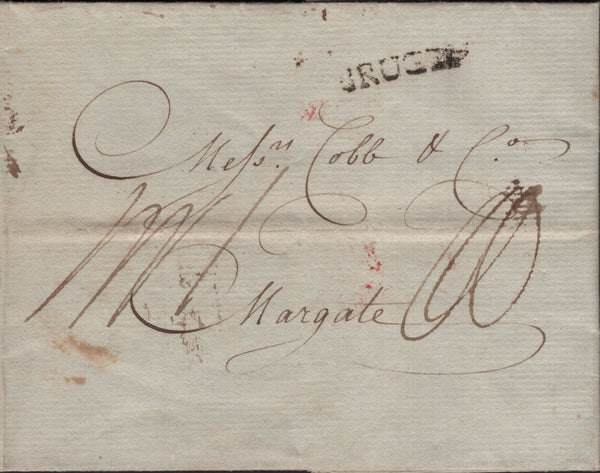 BRUGES
Messrs. Cobb & Co.
Margate